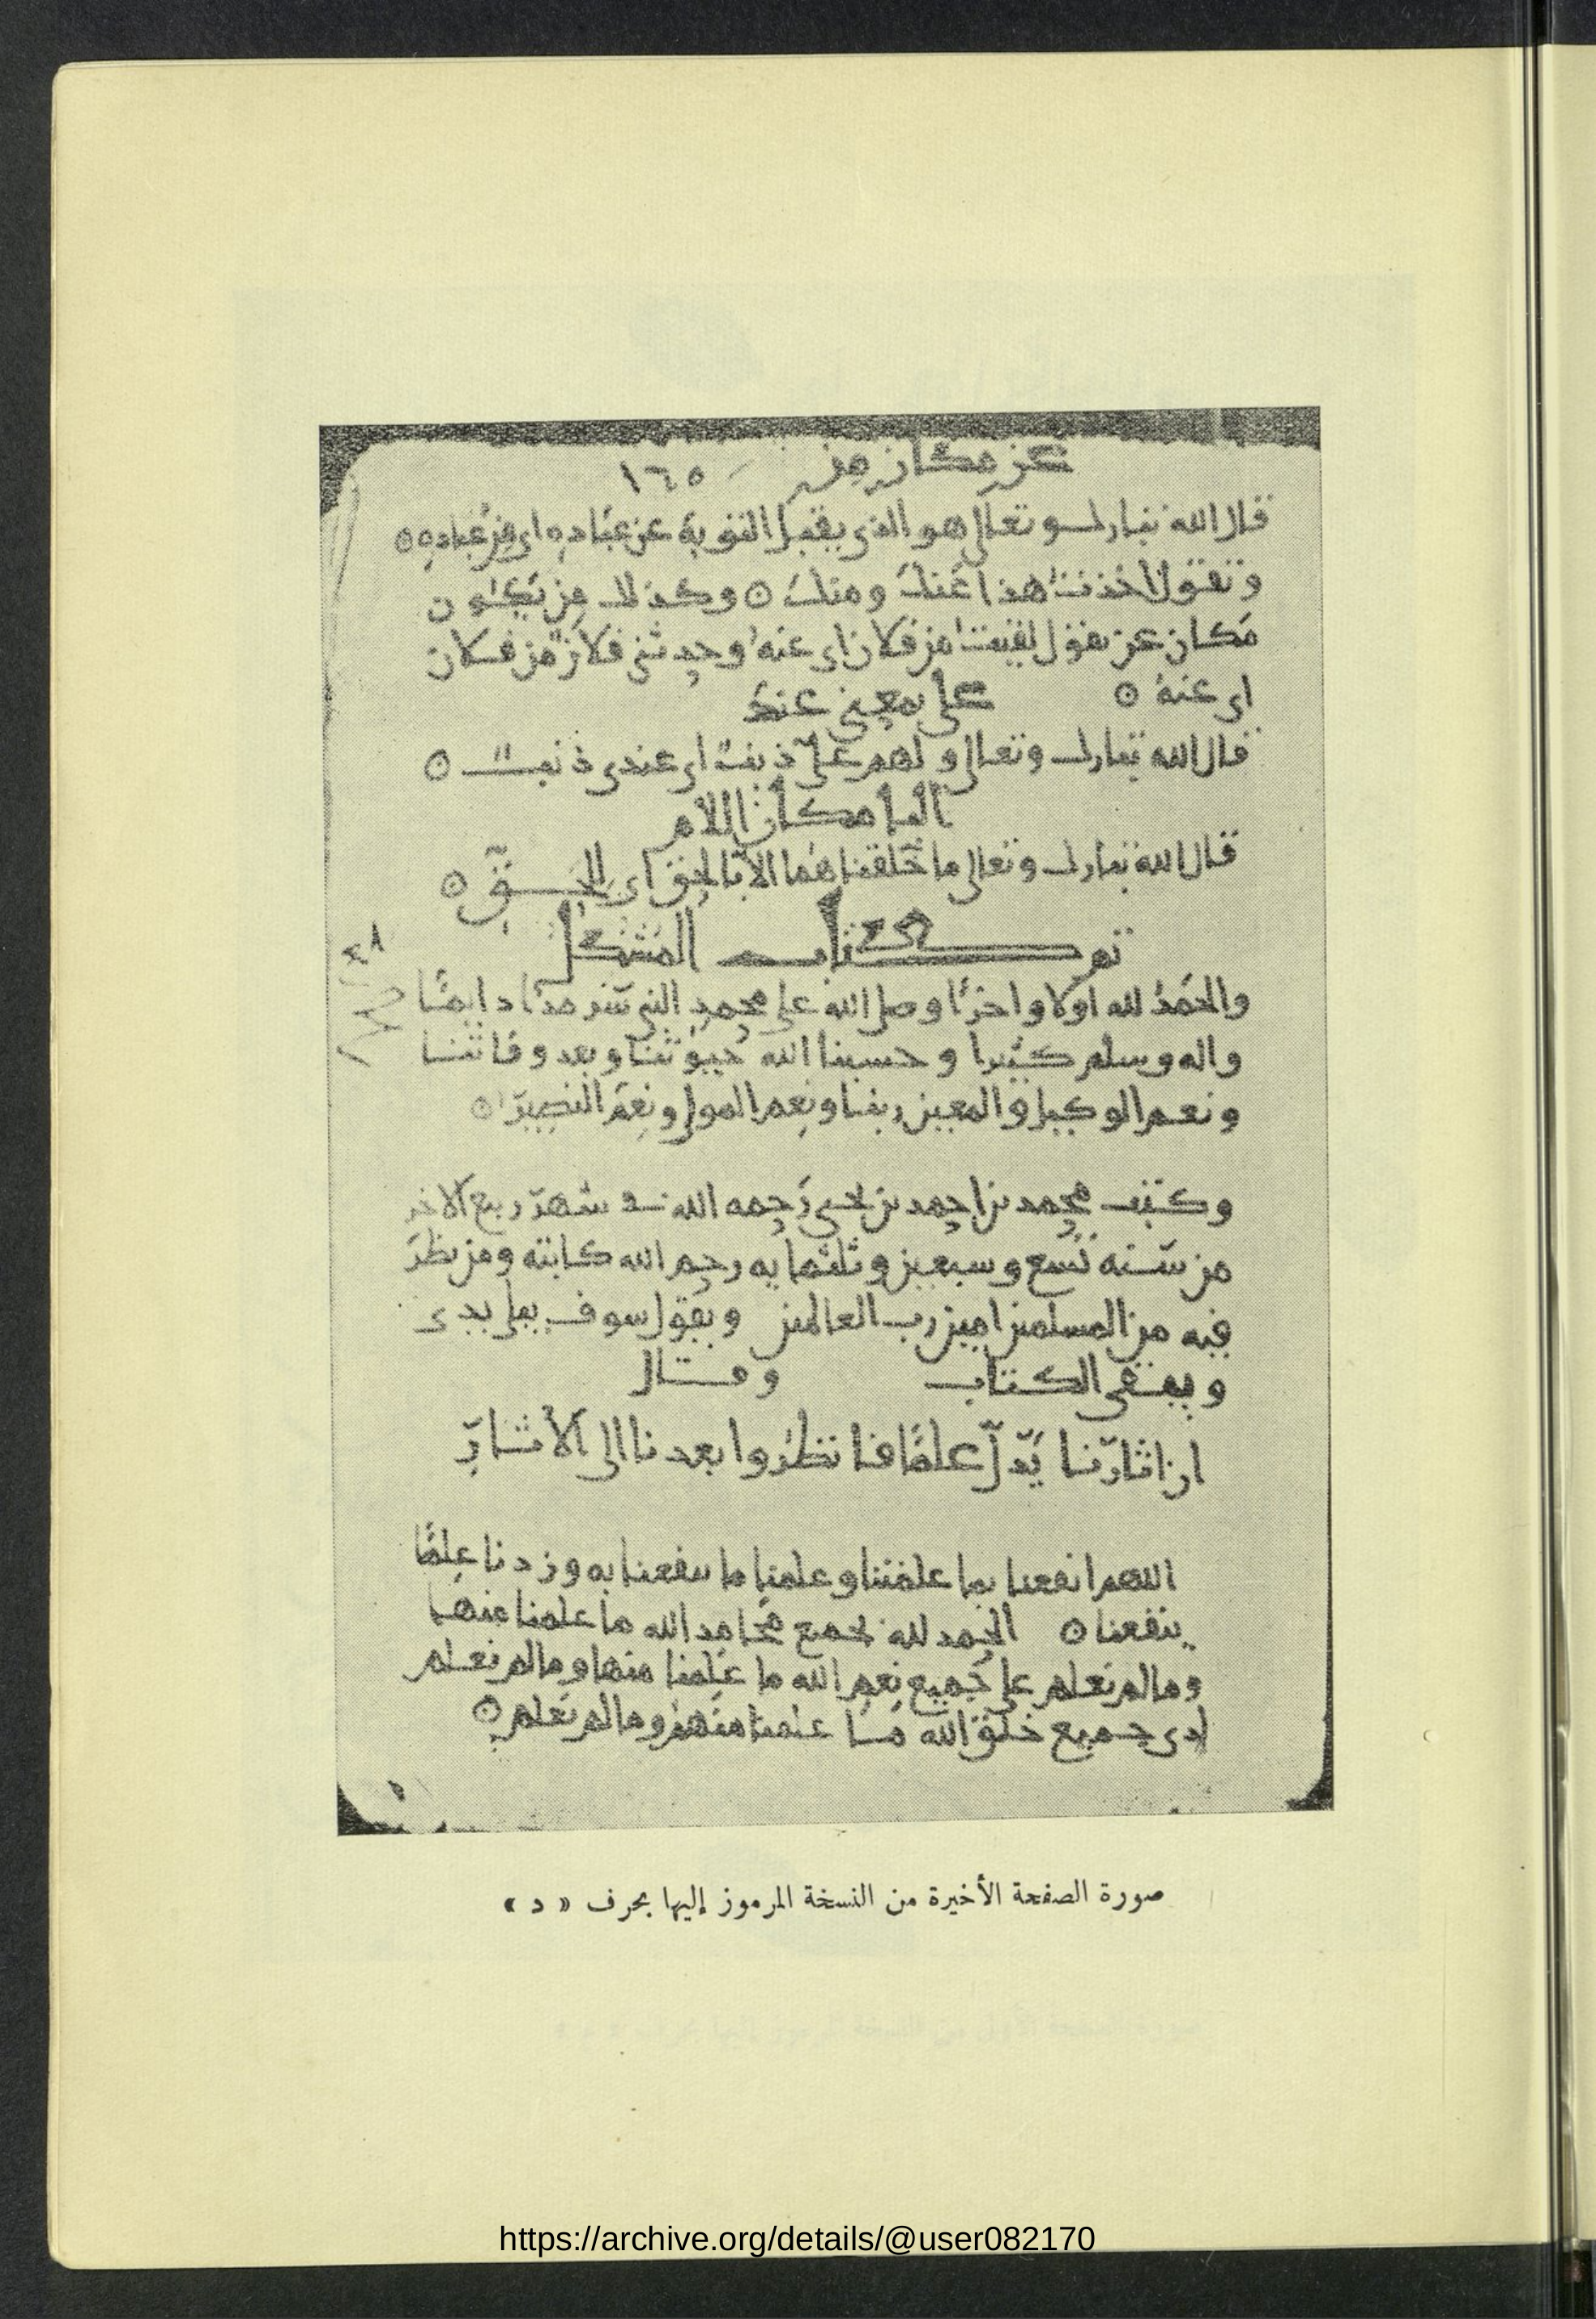 عن مكان من ١٦٥
قال الله تبارك وتعالى هو الذى يقبل التوبة عن عباده اى من عباده ⊙
وتقول اخذت هذا عنك ومنك ⊙ وكذلك من تكون
مكان عن تقول لقيت من فلان اى عنه وحدثنى فلان من فلان
اى عنه ⊙ على بمعنى عند
قال الله تبارك وتعالى ولهم على ذنب اى عندى ذنب ⊙
البا مكان اللام
قال الله تبارك وتعالى ما خلقناهما الا بالحق اى للحق ⊙
تم كتاب المشكل
والحمد لله اولا واخرا وصلى الله على محمد النبى سرمدا دايما
واله وسلم كثيرا وحسبنا الله حيوتنا وبعد وفاتنا
ونعم الوكيل والمعين ربنا ونعم المولى ونعم النصير ⊙
وكتب محمد بن احمد بن يحيى رحمه الله فى شهر ربيع الاخر
من سنة تسع وسبعين وثلثمايه رحم الله كاتبه ومن نظر
فيه من المسلمين امين رب العالمين ويقول سوف يبلى يدى
ويبقى الكتاب وقال
ان اثارنا تدل علينا فانظروا بعدنا الى الاثار
اللهم انفعنا بما علمتنا وعلمنا ما ينفعنا به وزدنا علما
ينفعنا ⊙ الحمد لله بجميع محامد الله ما علمنا منها
وما لم نعلم على جميع نعم الله ما علمنا منها وما لم نعلم
جميع خلق الله ما علمنا منهم وما لم نعلم ⊙
صورة الصفحة الأخيرة من النسخة المرموز إليها بحرف « د »
https://archive.org/details/@user082170